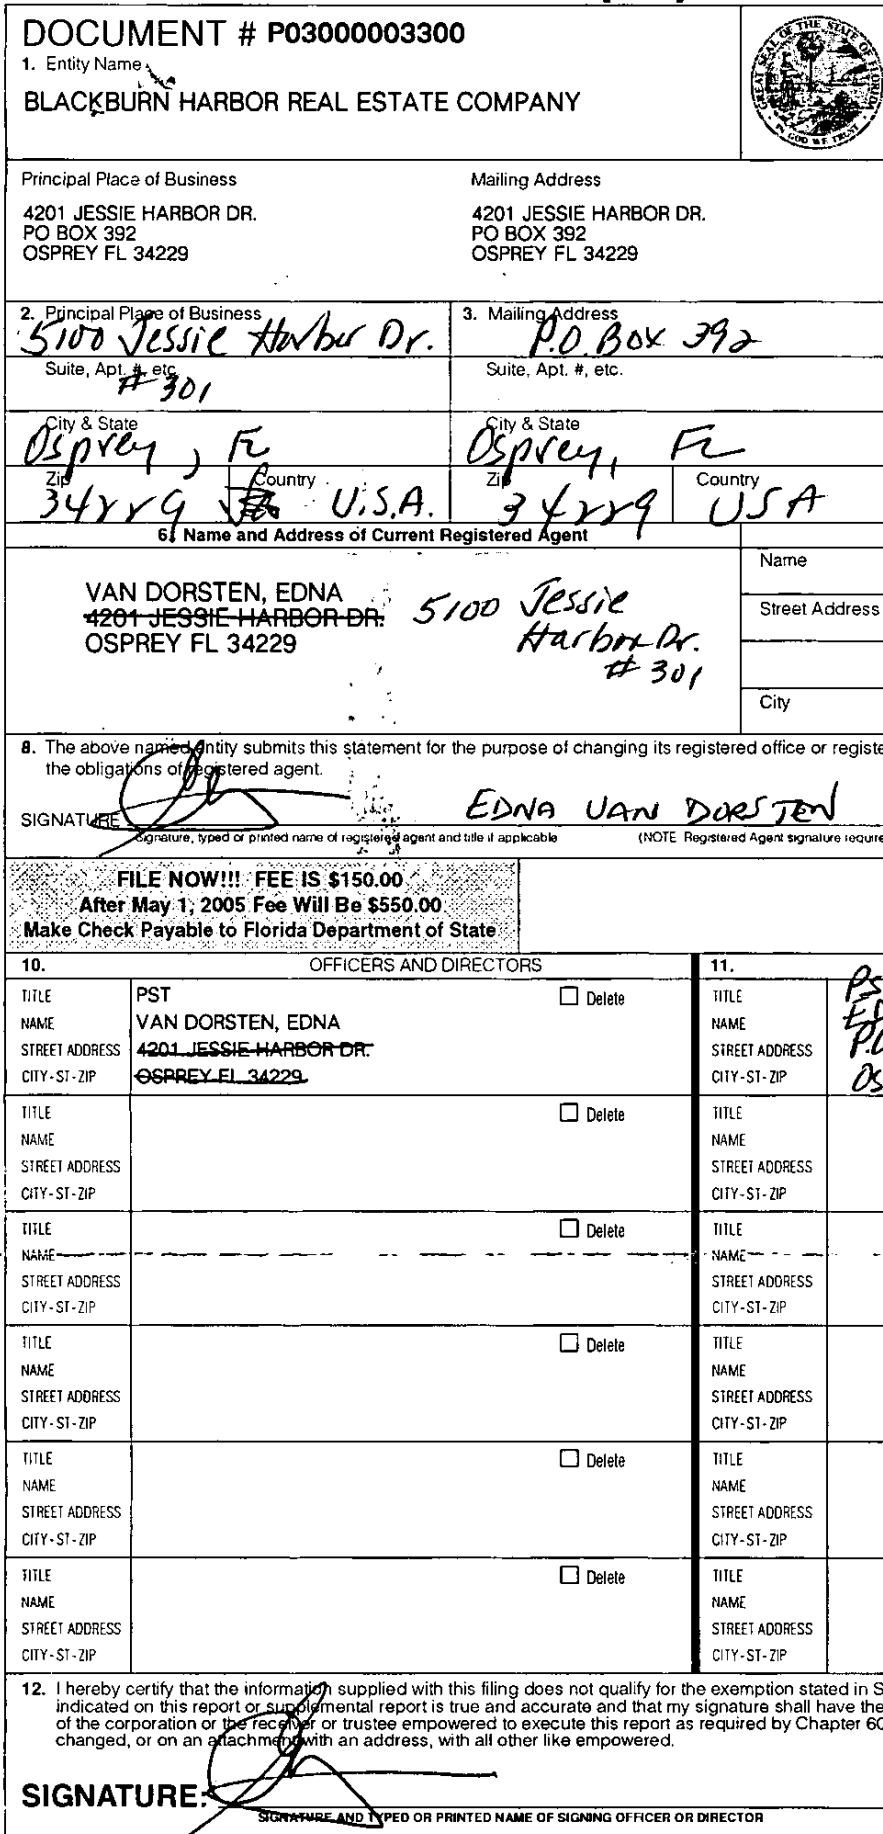 DOCUMENT # P03000003300
1. Entity Name
BLACKBURN HARBOR REAL ESTATE COMPANY
GREAT SEAL OF THE STATE OF FLORIDA
IN GOD WE TRUST
Principal Place of Business
4201 JESSIE HARBOR DR.
PO BOX 392
OSPREY FL 34229
Mailing Address
4201 JESSIE HARBOR DR.
PO BOX 392
OSPREY FL 34229
2. Principal Place of Business
5100 Jessie Harbor Dr.
Suite, Apt. #, etc.
#301
City & State
Osprey, FL
Zip
34229
Country
U.S.A.
3. Mailing Address
P.O. Box 392
Suite, Apt. #, etc.
City & State
Osprey, FL
Zip
34229
Country
USA
6. Name and Address of Current Registered Agent
VAN DORSTEN, EDNA
4201 JESSIE HARBOR DR.
OSPREY FL 34229
5100 Jessie
Harbor Dr.
#301
Name
Street Address
City
8. The above named entity submits this statement for the purpose of changing its registered office or registe
the obligations of registered agent.
SIGNATURE
EDNA VAN DORSTEN
Signature, typed or printed name of registered agent and title if applicable
(NOTE Registered Agent signature require
FILE NOW!!! FEE IS $150.00
After May 1, 2005 Fee Will Be $550.00
Make Check Payable to Florida Department of State
10. OFFICERS AND DIRECTORS
TITLE PST Delete
NAME VAN DORSTEN, EDNA
STREET ADDRESS 4201 JESSIE HARBOR DR.
CITY-ST-ZIP OSPREY FL 34229
TITLE Delete
NAME
STREET ADDRESS
CITY-ST-ZIP
TITLE Delete
NAME
STREET ADDRESS
CITY-ST-ZIP
TITLE Delete
NAME
STREET ADDRESS
CITY-ST-ZIP
TITLE Delete
NAME
STREET ADDRESS
CITY-ST-ZIP
TITLE Delete
NAME
STREET ADDRESS
CITY-ST-ZIP
11.
TITLE PS
NAME ED
STREET ADDRESS P.O
CITY-ST-ZIP OS
TITLE
NAME
STREET ADDRESS
CITY-ST-ZIP
TITLE
NAME
STREET ADDRESS
CITY-ST-ZIP
TITLE
NAME
STREET ADDRESS
CITY-ST-ZIP
TITLE
NAME
STREET ADDRESS
CITY-ST-ZIP
TITLE
NAME
STREET ADDRESS
CITY-ST-ZIP
12. I hereby certify that the information supplied with this filing does not qualify for the exemption stated in S
indicated on this report or supplemental report is true and accurate and that my signature shall have the
of the corporation or the receiver or trustee empowered to execute this report as required by Chapter 60
changed, or on an attachment with an address, with all other like empowered.
SIGNATURE:
SIGNATURE AND TYPED OR PRINTED NAME OF SIGNING OFFICER OR DIRECTOR